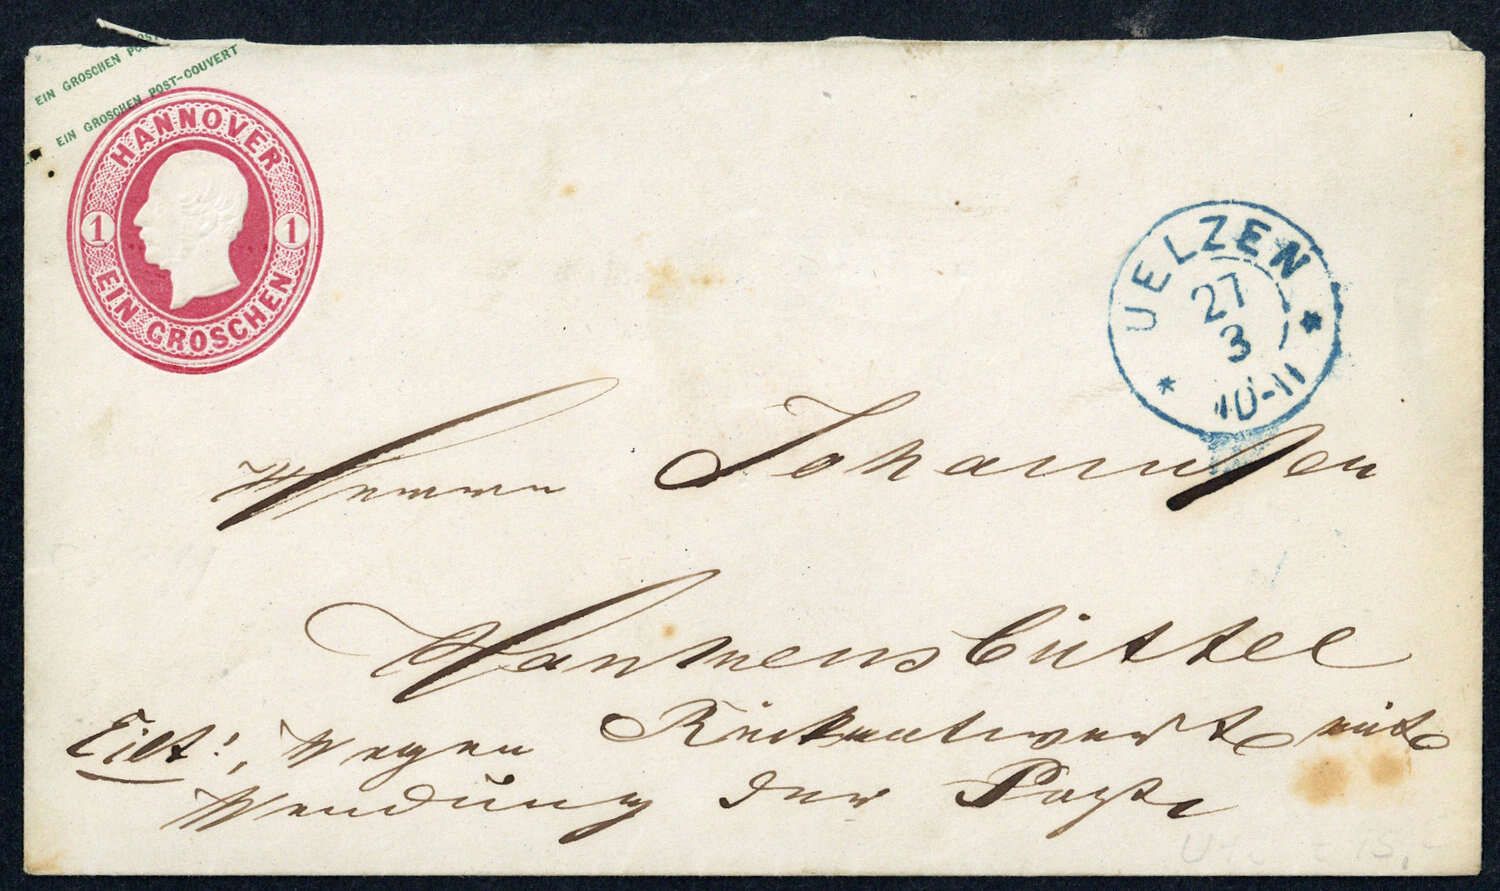 EIN GROSCHEN POST
EIN GROSCHEN POST-COUVERT
HANNOVER
1 1
EIN GROSCHEN
UELZEN
27
3
10-11
Herrn Johannssen
Hankensbüttel
Eilt!, Wegen Rückantwort mit
Wendung der Post